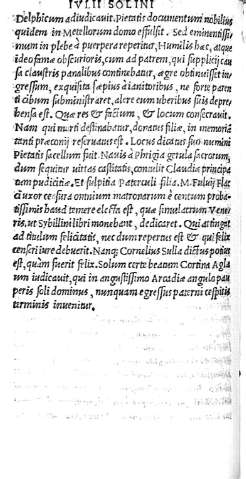 IVLII SOLINI
Delphicum adiudicauit. Pietatis documentum nobilius
quidem in Metellorum domo effulsit. Sed eminentissi-
mum in plebe à puerpera reperitur, Humilis hæc, atque
ideo famæ obscurioris, cum ad patrem, qui supplicij cau
sa claustris pœnalibus continebatur, ægre obtinuisset in-
gressum, exquisita sæpius à ianitoribus, ne forte paren
ti cibum subministraret, alere eum vberibus suis depre
hensa est. Quæ res & factum, & locum consecrauit.
Nam qui morti destinabatur, donatus filiæ, in memoriā
tanti præconij reseruatus est. Locus dicatus suo numini
Pietatis sacellum fuit. Nauis à Phrigia gerula sacrorum,
dum sequitur vittas castitatis, contulit Claudiæ principa
tum pudicitiæ. Et Sulpitia Paterculi filia. M. Fuluij Flac
ci vxor censura omnium matronarum è centum proba-
tissimis haud temere electa est, quæ simulacrum Vene
ris, vt Sybillini libri monebant, dedicaret. Qui attinget
ad titulum felicitatis, nec dum repertus est & qui felix
censeri iure debuerit. Nanq; Cornelius Sulla dictus potius
est, quàm fuerit felix. Solum certe beatum Cortina Agla
um iudicauit, qui in angustissimo Arcadiæ angulo pau
peris soli dominus, nunquam egressus paterni cespitis
terminis inuenitur.